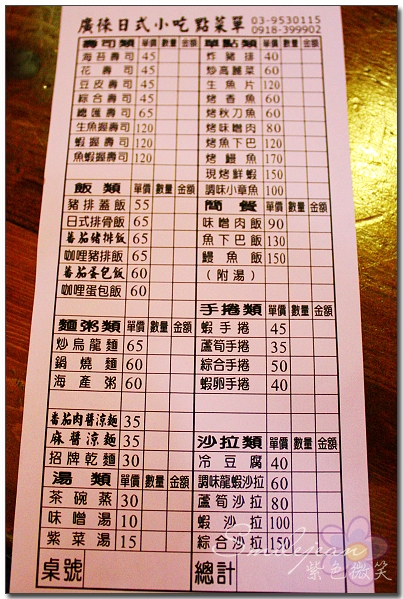 廣徠日式小吃點菜單 03-9530115
0918-399902
壽司類 單價 數量 金額
海苔壽司 45
花壽司 45
豆皮壽司 45
綜合壽司 45
總匯壽司 65
生魚握壽司 120
蝦握壽司 120
魚蝦握壽司 120
飯類 單價 數量 金額
豬排蓋飯 55
日式排骨飯 65
蕃茄豬排飯 65
咖哩豬排飯 65
蕃茄蛋包飯 60
咖哩蛋包飯 60
麵粥類 單價 數量 金額
炒烏龍麵 65
鍋燒麵 60
海產粥 60
蕃茄肉醬涼麵 35
麻醬涼麵 35
招牌乾麵 30
湯類 單價 數量 金額
茶碗蒸 30
味噌湯 10
紫菜湯 15
桌號
單點類 單價 數量 金額
炸豬排 40
炒高麗菜 60
生魚片 120
烤香魚 60
烤秋刀魚 60
烤味噌肉 80
烤魚下巴 120
烤鰻魚 170
現烤鮮蝦 150
調味小章魚 100
簡餐 單價 數量 金額
味噌肉飯 90
魚下巴飯 130
鰻魚飯 150
(附湯)
手捲類 單價 數量 金額
蝦手捲 45
蘆筍手捲 35
綜合手捲 50
蝦卵手捲 40
沙拉類 單價 數量 金額
冷豆腐 40
調味龍蝦沙拉 60
蘆筍沙拉 80
蝦沙拉 100
綜合沙拉 150
總計
Smilejean
紫色微笑